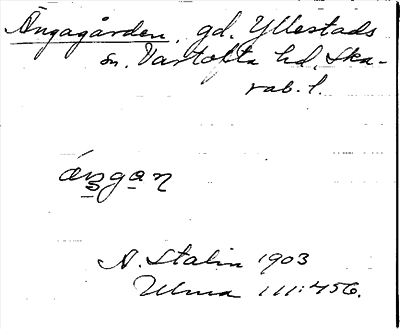 Ängagården, gd. Yllestads
sn. Vartofta hd. Ska-
rab. l.
A. Stalin 1903
Ulma 111:456.